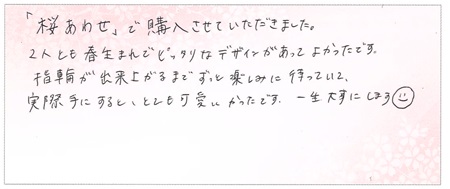 「桜あわせ」で購入させていただきました。
2人とも春生まれでピッタリなデザインがあってよかったです。
指輪が出来上がるまでずっと楽しみに待っていて、
実際手にすると、とても可愛いかったです。一生大事にします